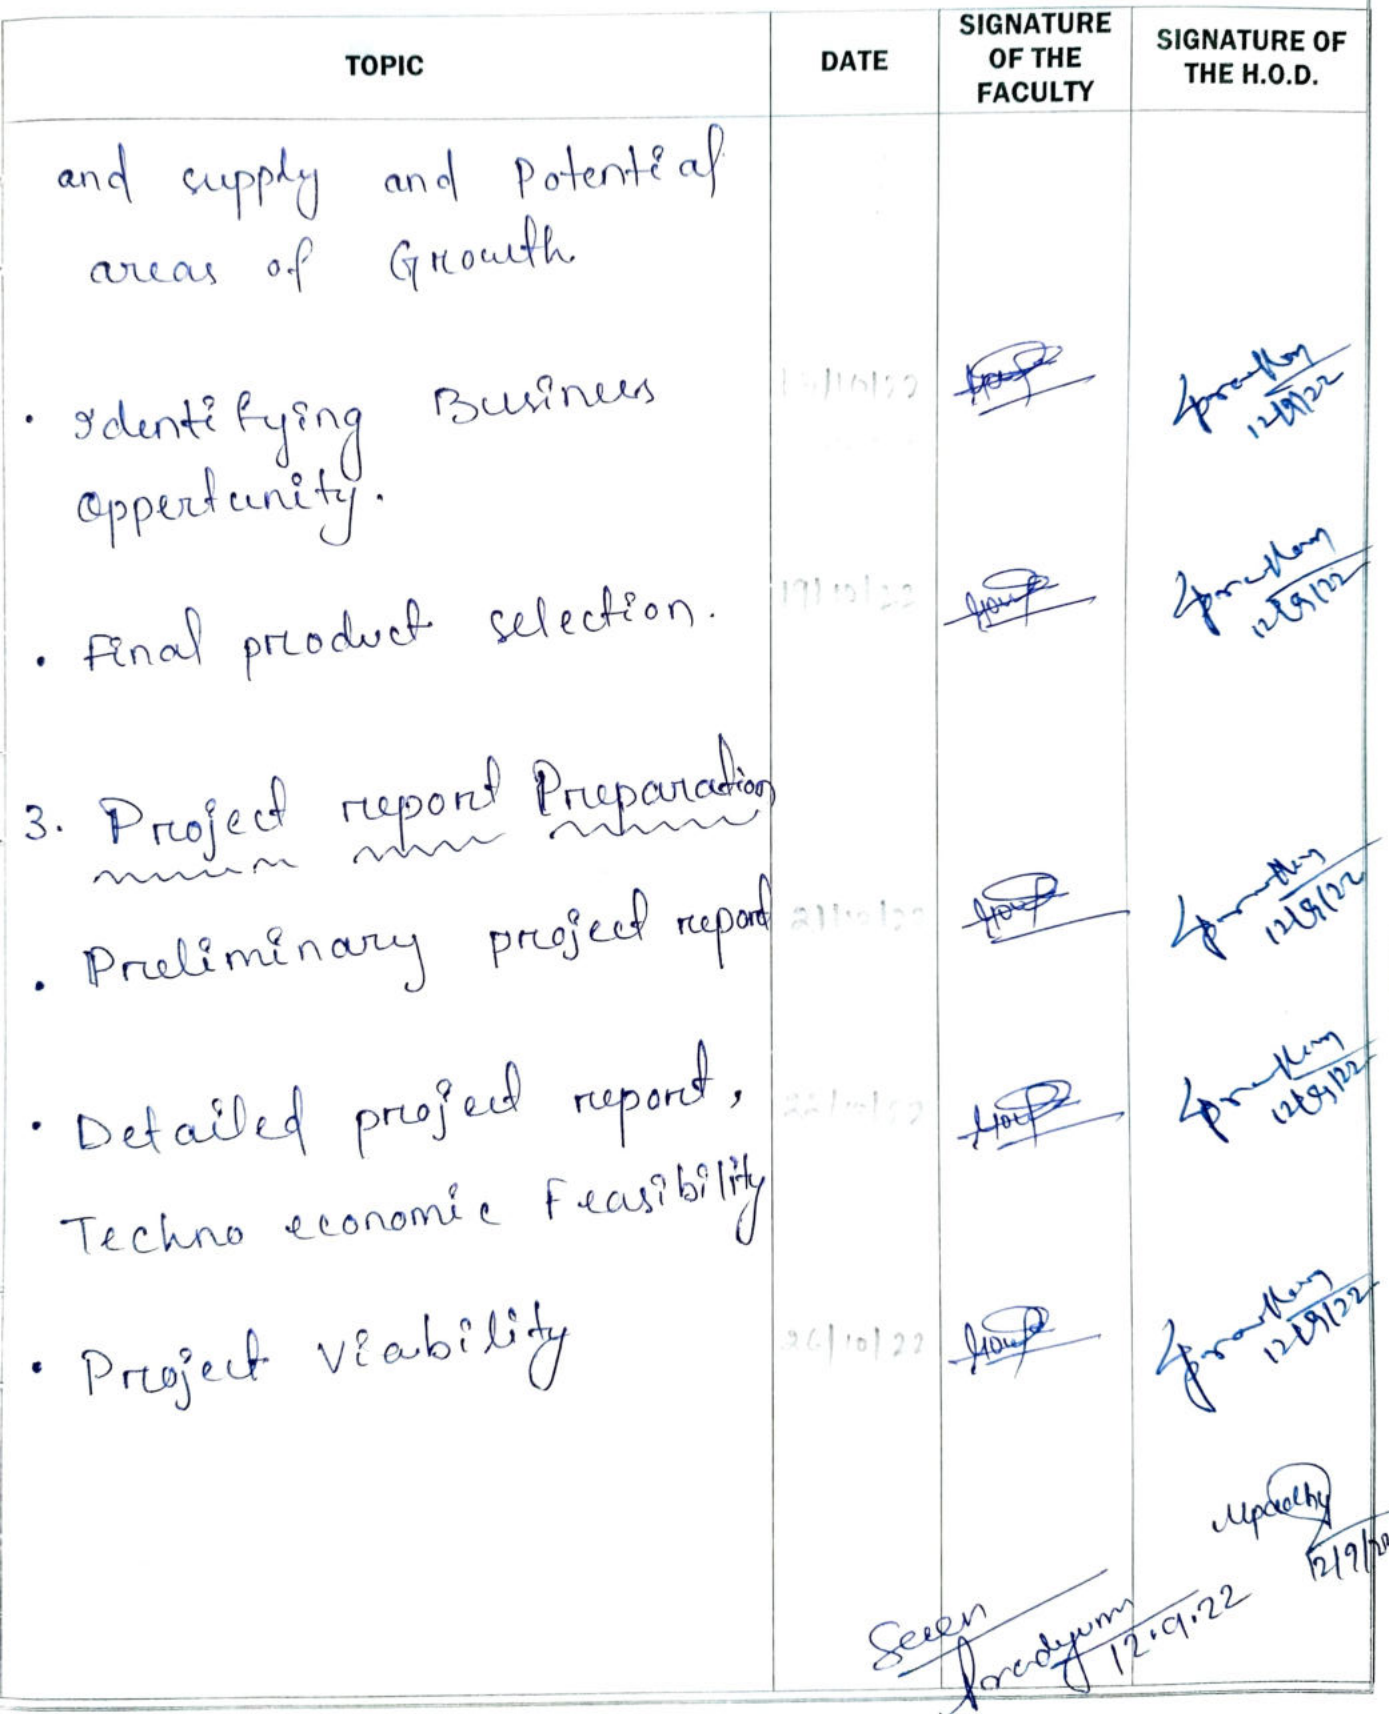 TOPIC
DATE
SIGNATURE OF THE FACULTY
SIGNATURE OF THE H.O.D.
and supply and Potential
areas of Growth
• Identifying Business
12/9/22
oppertunity.
19/10/22
12/9/22
• Final product selection.
3. Project report Preparation
• Preliminary project report
21/10/22
12/9/22
• Detailed project report,
22/10/22
12/9/22
Techno economic Feasibility
• Project Viability
26/10/22
12/9/22
Seen
12.9.22